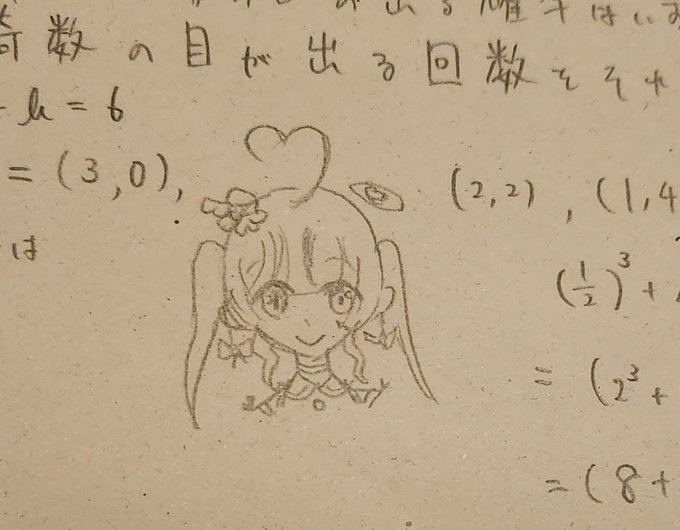 が出る確率はい
奇数の目が出る回数をそれ
k = 6
= (3,0), (2,2), (1,4
は
(1/2)³ +
= (2³ +
= (8 +